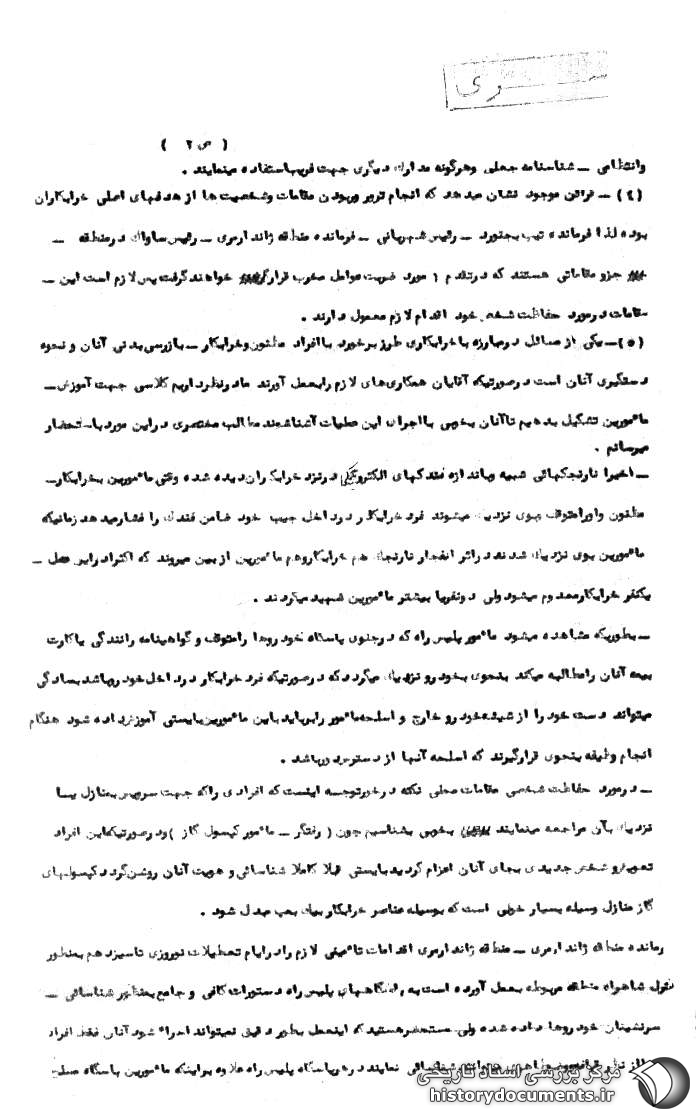 سری
( ص ۲ )
وانتظامی ــ شناسنامه جعلی وهرگونه مدارك دیگری جهت فریب استفاده مینمایند .
(٤) ــ قرائن موجود نشان میدهد که انجام ترور وربودن مقامات وشخصیت ها از هدفهای اصلی خرابکاران
بوده لذا فرمانده تیپ بجنورد ــ رئیس شهربانی ــ فرمانده منطقه ژاندارمری ــ رئیس ساواك درمنطقه ــ
جزو مقاماتی هستند که درتقدم ۱ مورد ضربت عوامل مخرب قرار خواهند گرفت پس لازم است این ــ
مقامات درمورد حفاظت شخصی خود اقدام لازم معمول دارند .
(٥) ــ یکی از مسائل درمبارزه با خرابکاری طرز برخورد با افراد مظنون وخرابکار ــ بازرسی بدنی آنان و نحوه
دستگیری آنان است درصورتیکه آقایان همکاری های لازم را بعمل آورند مادرنظرداریم کلاسی جهت آموزش ــ
مأمورین تشکیل بدهیم تا آنان بخوبی با اجرای این عملیات آشناشوند مطالب مختصری دراین مورد باستحضار
میرسانم .
ــ اخیرا نارنجکهائی شبیه وباندازه فندکهای الکترونیکی درنزد خرابکاران دیده شده وقتی مأمورین بخرابکار ــ
مظنون واورامتوقف وبوی نزدیك میشوند فرد خرابکار درداخل جیب خود ضامن فندك را فشارمیدهد زمانیکه
مأمورین بوی نزدیك شدند دراثر انفجار نارنجك هم خرابکاروهم مأمورین ازبین میروند که اکثرا دراین عمل ــ
یکنفر خرابکارمعدوم میشود ولی دونفریا بیشتر مأمورین شهید میگردند .
ــ بطوریکه مشاهده میشود مأمور پلیس راه که درجلوی پاسگاه خودروها رامتوقف و گواهینامه رانندگی یاکارت
بیمه آنان رامطالبه میکند بنحوی بخودرو نزدیك میگردد که درصورتیکه فرد خرابکار درداخل خودرو باشد بسادگی
میتواند دست خود را از شیشه خودرو خارج و اسلحه مأمور را برباید باین مأمورین بایستی آموزش داده شود هنگام
انجام وظیفه بنحوی قرارگیرند که اسلحه آنها از دسترس دورباشد .
ــ درمورد حفاظت شخصی مقامات محلی نکته درخورتوجه اینست که افرادی راکه جهت سرویس بمنازل یا
نزدیك بآن مراجعه مینمایند بخوبی بشناسیم چون ( رفتگر ــ مأمور کپسول گاز ) ودرصورتیکه این افراد
تعویض و شخص جدیدی بجای آنان اعزام گردید بایستی قبلا کاملا شناسائی و هویت آنان روشن گردد کپسولهای
گاز منازل وسیله بسیار خوبی است که بوسیله عناصر خرابکار بیك بمب مبدل شود .
رمانده منطقه ژاندارمری ــ منطقه ژاندارمری اقدامات تأمینی لازم رادرایام تعطیلات نوروزی تاسیزدهم بمنظور
کنترل شاهراه منطقه مربوطه بعمل آورده است به پاسگاههای پلیس راه دستورات کافی و جامع بمنظور شناسائی ــ
سرنشینان خودروها داده شده ولی مستحضر هستید که اینعمل بطور دقیق نمیتواند اجراء شود آنان فقط افراد
نمایند درهرپاسگاه پلیس راه علاوه براینکه مأمورین پاسگاه مسلح
مرکز بررسی اسناد تاریخی
historydocuments.ir